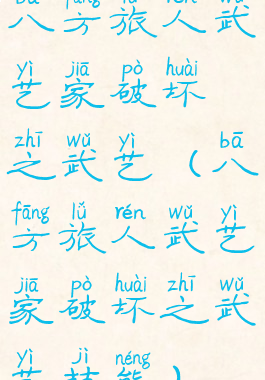 bā fāng lǚ rén wǔ
八方旅人武
yì jiā pò huài
艺家破坏
zhī wǔ yì bā
之武艺（八
fāng lǚ rén wǔ yì
方旅人武艺
jiā pò huài zhī wǔ
家破坏之武
yì jì néng
艺技能）